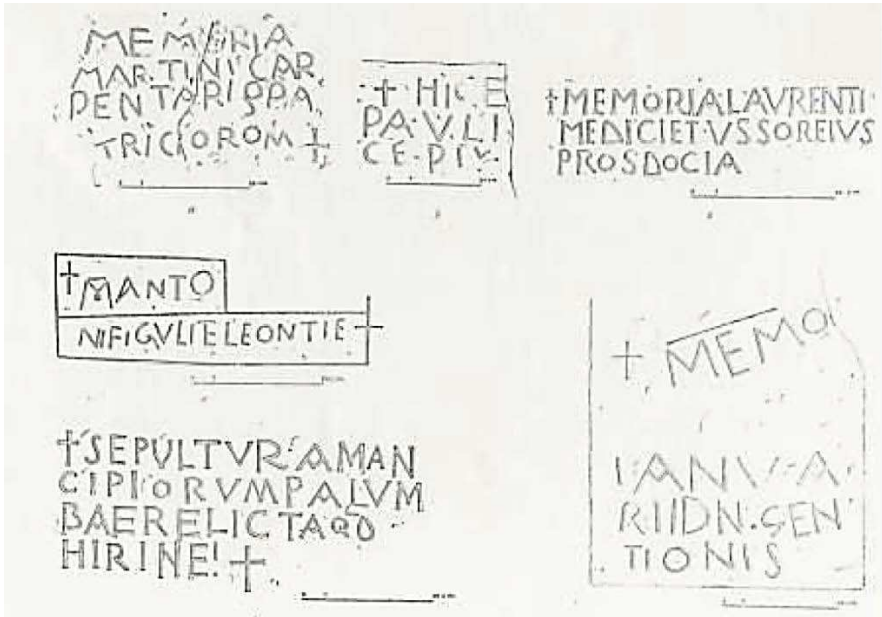 MEMORIA
MARTINI CAR
PENTARIS PA
TRICIOROM +
+ HIC E
PA·V·LI
CE·PIV·
+ MEMORIA LAVRENTI
MEDICI ET VSSOR EIVS
PROSDOCIA
+ MANTO
NI FIGVLI E LEONTIE +
+ MEMO
IANV·A
RII DN·GEN
TIONIS
+ SEPULTVR·A MAN
CIPIORVM PALVM
BAE RELICTA QD
HIRINE! +